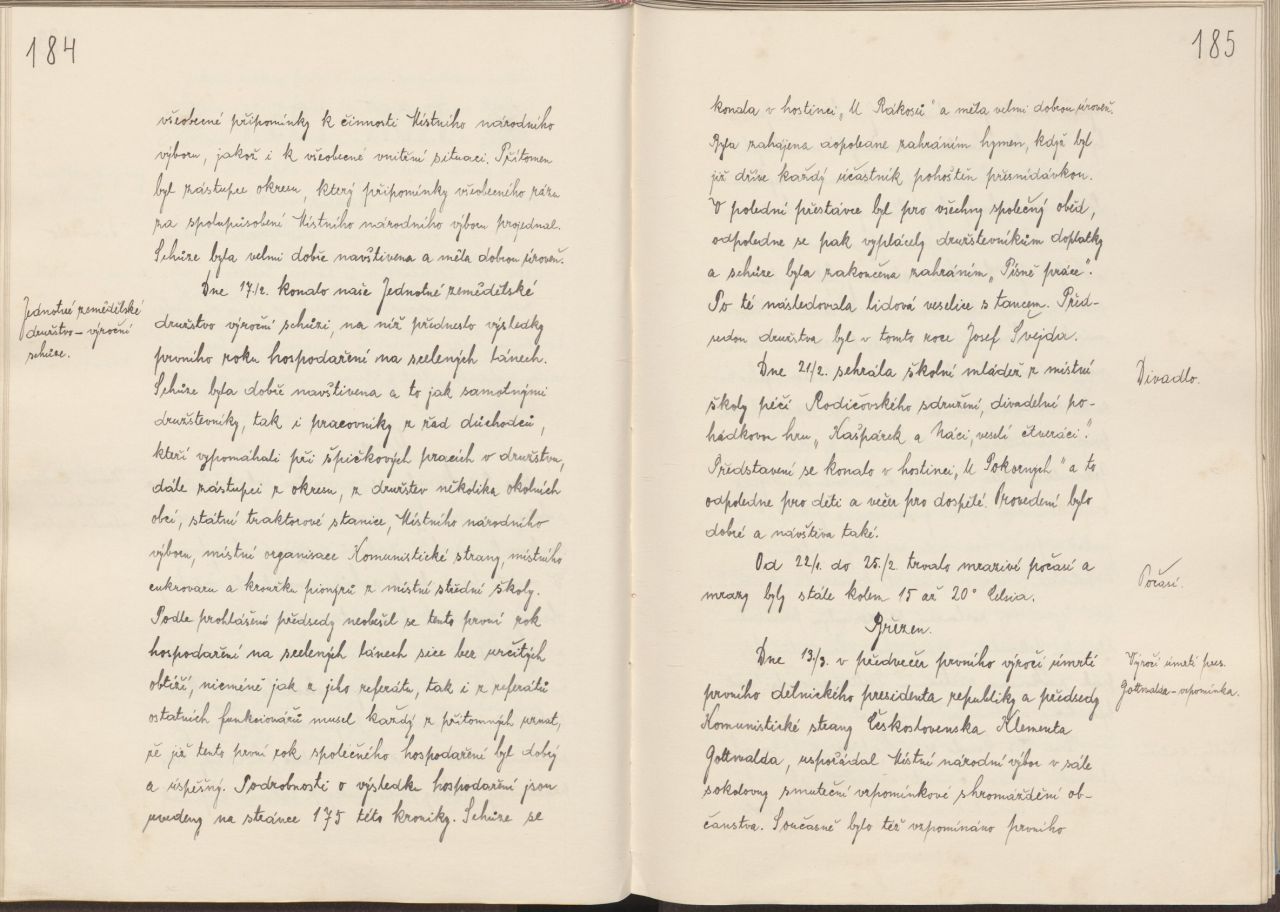 184
všeobecné připomínky k činnosti Místního národního
výboru, jakož i k všeobecné vnitřní situaci. Přítomen
byl zástupce okresu, který připomínky všeobecného rázu
za spolupůsobení Místního národního výboru projednal.
Schůze byla velmi dobře navštívena a měla dobrou úroveň.
Jednotné zemědělské
družstvo – výroční
schůze.
Dne 17./2. konalo naše Jednotné zemědělské
družstvo výroční schůzi, na níž předneslo výsledky
prvního roku hospodaření na scelených lánech.
Schůze byla dobře navštívena a to jak samotnými
družstevníky, tak i pracovníky z řad důchodců,
kteří vypomáhali při špičkových pracích v družstvu,
dále zástupci z okresu, z družstev několika okolních
obcí, státní traktorové stanice, Místního národního
výboru, místní organisace Komunistické strany, místního
cukrovaru a kroužku pionýrů z místní střední školy.
Podle prohlášení předsedy neobešel se tento první rok
hospodaření na scelených lánech sice bez určitých
obtíží, nicméně jak z jeho referátu, tak i z referátů
ostatních funkcionářů musel každý z přítomných uznat,
že již tento první rok společného hospodaření byl dobrý
a úspěšný. Podrobnosti o výsledku hospodaření jsou
uvedeny na stránce 175 této kroniky. Schůze se
185
konala v hostinci „U Rákosů“ a měla velmi dobrou úroveň.
Byla zahájena dopoledne zahráním hymen, když byl
již dříve každý účastník pohoštěn přesnídávkou.
V polední přestávce byl pro všechny společný oběd,
odpoledne se pak vyplácely družstevníkům doplatky
a schůze byla zakončena zahráním „Písně práce“.
Po té následovala lidová veselice s tancem. Před-
sedou družstva byl v tomto roce Josef Švejda.
Divadlo.
Dne 21/2. sehrála školní mládež z místní
školy péčí Rodičovského sdružení, divadelní po-
hádkovou hru „Kašpárek a Náci, veselí čtveráci“.
Představení se konalo v hostinci „U Pokorných“ a to
odpoledne pro děti a večer pro dospělé. Provedení bylo
dobré a návštěva také.
Počasí.
Od 22/1. do 25./2 trvalo mrazivé počasí a
mrazy byly stále kolem 15 až 20° Celsia.
Březen.
Výročí úmrtí pres.
Gottwalda – vzpomínka.
Dne 13/3. v předvečer prvního výročí úmrtí
prvního dělnického presidenta republiky a předsedy
Komunistické strany Československa Klementa
Gottwalda, uspořádal Místní národní výbor v sále
sokolovny smuteční vzpomínkové shromáždění ob-
čanstva. Současně bylo též vzpomínáno prvního